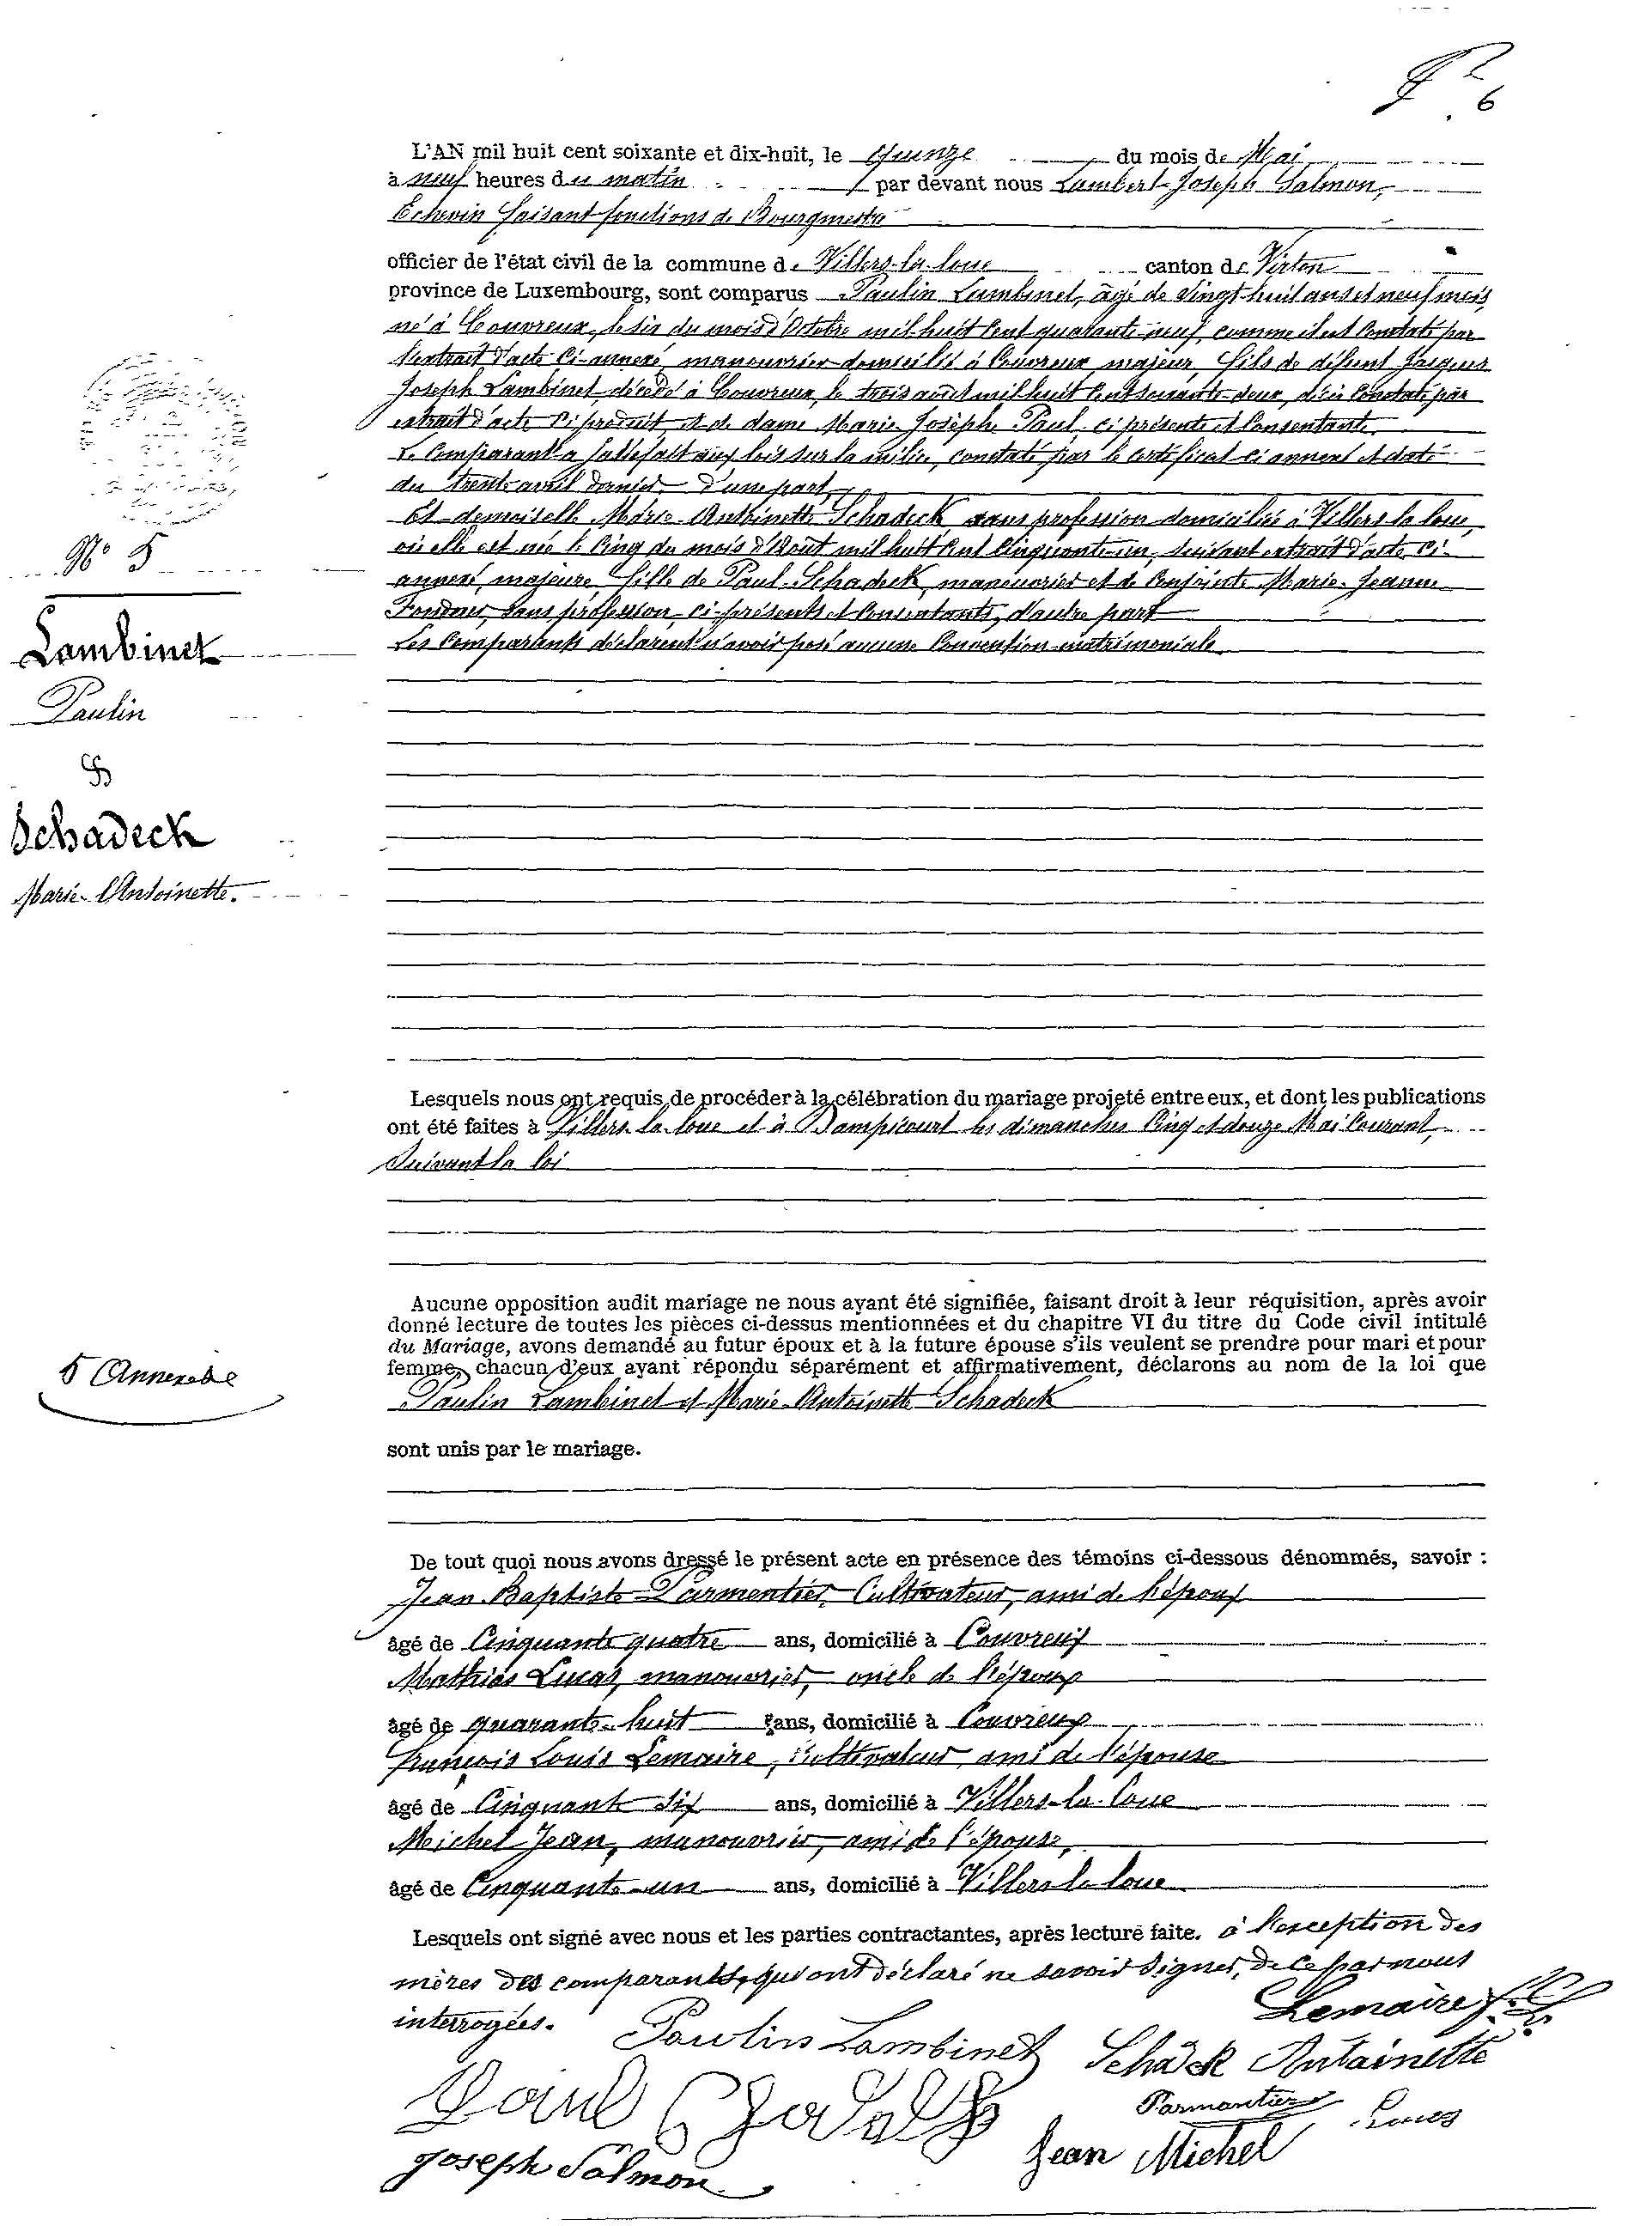 F 6
L'AN mil huit cent soixante et dix-huit, le quinze du mois de Mai
à neuf heures du matin par devant nous Lambert-Joseph Salmon,
Echevin faisant fonctions de Bourgmestre
officier de l'état civil de la commune de Villers-la-loue canton de Virton
province de Luxembourg, sont comparus Paulin Lambinet, âgé de vingt-huit ans et neuf mois,
né à Couvreux, le six du mois d'Octobre mil huit Cent quarante-neuf, comme il est Constaté par
l'extrait d'acte Ci-annexé, manouvrier domicilié à Couvreux, majeur, fils de défunt Jacques
Joseph Lambinet, décédé à Couvreux, le trois août mil huit Cent soixante-deux, décès Constaté par
extrait d'acte Ci produit et de dame Marie-Josèphe Paul ci présente et Consentante.
Le Comparant a satisfait aux lois sur la milice, constaté par le certificat ci annexé et daté
du trente avril dernier d'une part,
Et demoiselle Marie-Antoinette Schadeck sans profession domiciliée à Villers la loue,
où elle est née le Cinq du mois d'Août mil huit Cent Cinquante-un, suivant extrait d'acte Ci-
annexé, majeure, fille de Paul Schadeck, manouvrier et de Conjointe Marie-Jeanne
sans profession, ci-présents et Consentants, d'autre part
Les Comparants déclarent n'avoir posé aucune Convention matrimoniale
N° 5
Lambinet
Paulin
&
Schadeck
Marie-Antoinette.
Lesquels nous ont requis de procéder à la célébration du mariage projeté entre eux, et dont les publications
ont été faites à Villers-la-loue et à Dampicourt les dimanches Cinq et douze Mai Courant,
Suivant la loi
Aucune opposition audit mariage ne nous ayant été signifiée, faisant droit à leur réquisition, après avoir
donné lecture de toutes les pièces ci-dessus mentionnées et du chapitre VI du titre du Code civil intitulé
du Mariage, avons demandé au futur époux et à la future épouse s'ils veulent se prendre pour mari et pour
femme, chacun d'eux ayant répondu séparément et affirmativement, déclarons au nom de la loi que
5 Annexes
Paulin Lambinet et Marie-Antoinette Schadeck
sont unis par le mariage.
De tout quoi nous avons dressé le présent acte en présence des témoins ci-dessous dénommés, savoir :
Jean-Baptiste Parmentier, Cultivateur, ami de l'époux
âgé de Cinquante quatre ans, domicilié à Couvreux
Mathias Lucas, manouvrier, oncle de l'époux
âgé de quarante-huit ans, domicilié à Couvreux
François Louis Lemaire, Cultivateur, ami de l'épouse
âgé de Cinquante six ans, domicilié à Villers-la-loue
Michel Jean, manouvrier, ami de l'épouse,
âgé de Cinquante-un ans, domicilié à Villers la loue
Lesquels ont signé avec nous et les parties contractantes, après lecture faite. à l'exception des
mères des comparants, qui ont déclaré ne savoir signer, de ce par nous
interrogées.
Lemaire f. L.
Paulin Lambinet
Schadek Antainette
Paul
Parmantier
Lucas
Joseph Salmon
Jean Michel